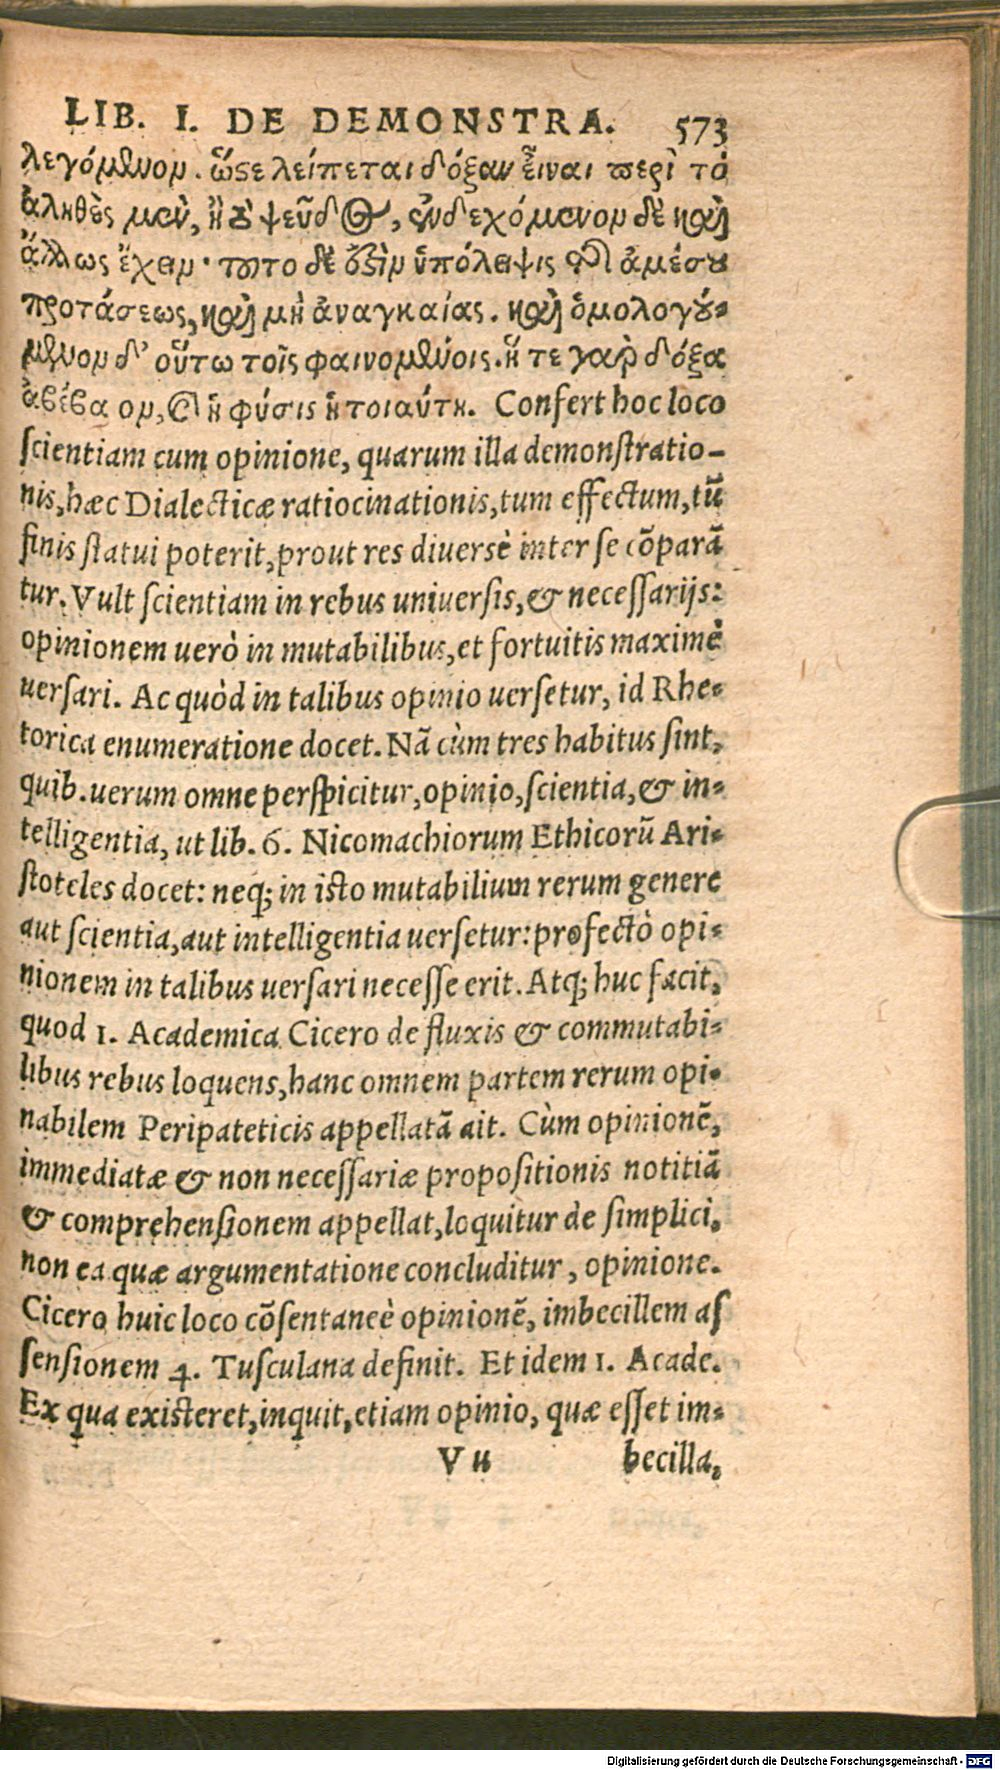 LIB. I. DE DEMONSTRA. 573
λεγόμενον. ὥστε λείπεται δόξαν εἶναι περὶ τὸ
ἀληθὲς μὲν, ἢ καὶ ψεῦδος, ἐνδεχόμενον δὲ καὶ
ἄλλως ἔχειν· τοῦτο δὲ ἐστὶν ὑπόληψις τῆς ἀμέσου
προτάσεως, καὶ μὴ ἀναγκαίας. καὶ ὁμολογού-
μενον δ' οὕτω τοῖς φαινομένοις. ἥ τε γὰρ δόξα
ἀβέβαιον, καὶ ἡ φύσις ἡ τοιαύτη. Confert hoc loco
scientiam cum opinione, quarum illa demonstratio-
nis, hæc Dialecticæ ratiocinationis, tum effectum, tũ
finis statui poterit, prout res diversè inter se cõparã
tur. Vult scientiam in rebus universis, & necessarijs:
opinionem uerò in mutabilibus, et fortuitis maximè
uersari. Ac quòd in talibus opinio uersetur, id Rhe-
torica enumeratione docet. Nã cùm tres habitus sint,
quib. uerum omne perspicitur, opinio, scientia, & in-
telligentia, ut lib. 6. Nicomachiorum Ethicorũ Ari-
stoteles docet: neq; in isto mutabilium rerum genere
aut scientia, aut intelligentia uersetur: profectò opi-
nionem in talibus uersari necesse erit. Atq; huc facit,
quod 1. Academica Cicero de fluxis & commutabi-
libus rebus loquens, hanc omnem partem rerum opi-
nabilem Peripateticis appellatã ait. Cùm opinionẽ,
immediatæ & non necessariæ propositionis notitiã
& comprehensionem appellat, loquitur de simplici,
non ea quæ argumentatione concluditur, opinione.
Cicero huic loco cõsentaneè opinionẽ, imbecillem as
sensionem 4. Tusculana definit. Et idem 1. Acade.
Ex qua existeret, inquit, etiam opinio, quæ esset im-
V u becilla,
Digitalisierung gefördert durch die Deutsche Forschungsgemeinschaft - DFG